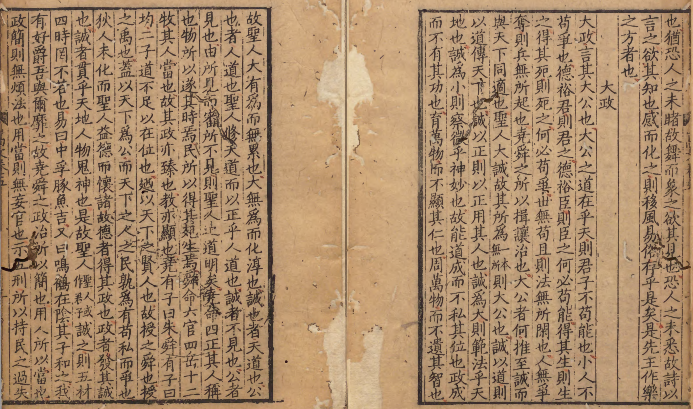 也猶恐人之未睹故舞而象之欲其見也恐人之未悉故詩以
言之欲其知也感而化之則移風易俗存乎是矣是先王作樂
之方者也
大政
大政言其大公也大公之道在乎天則君子不苟能也小人不
苟爭也德裕君則君之德裕臣則臣之何必苟能得其生則生
之得其死則死之何必苟爭世無苟且則法無所閉也人無爭
奪則兵無所起也堯舜之所以揖讓治也大公者何推至誠而
與天下同適也聖人大誠故其所為則大公也誠以道則
以道傳天下也誠以正則以正用其人也誠為大則範法乎天
地也誠為小則察微乎神妙也故能道成而不私其位也政成
而不有其功也育萬物而不顯其仁也周萬物而不遺其智也
故聖人大有為而無累也大無為而化淳也誠也者天道也公
也者人道也聖人修天道而以正乎人道也誠者不見也公者
見也由所見而審所不見則聖人之道明矣堯命四正其人稱
也物所以遂其時焉民所以得其死生焉舜命六官四岳十二
牧其人當也故其政亦臻也教亦顯也堯有子曰朱舜有子曰
均二子道不足以在位也遞以天下之賢人也故授之舜也授
之禹也蓋以天下為公而天下之人之民孰為有苟私而爭也
狄人未化而聖人益德而懷諸故德者得其政也政者發其誠
也誠者貫乎天地人物鬼神也是故聖人誠之則五材
四時罔不若也易曰中孚豚魚吉又曰鳴鶴在陰其子和之我
有好爵吾與爾靡之故堯舜之政治所以簡也用人所以當也
政簡則無煩法也用當則無妄官也示五刑所以持民之過失